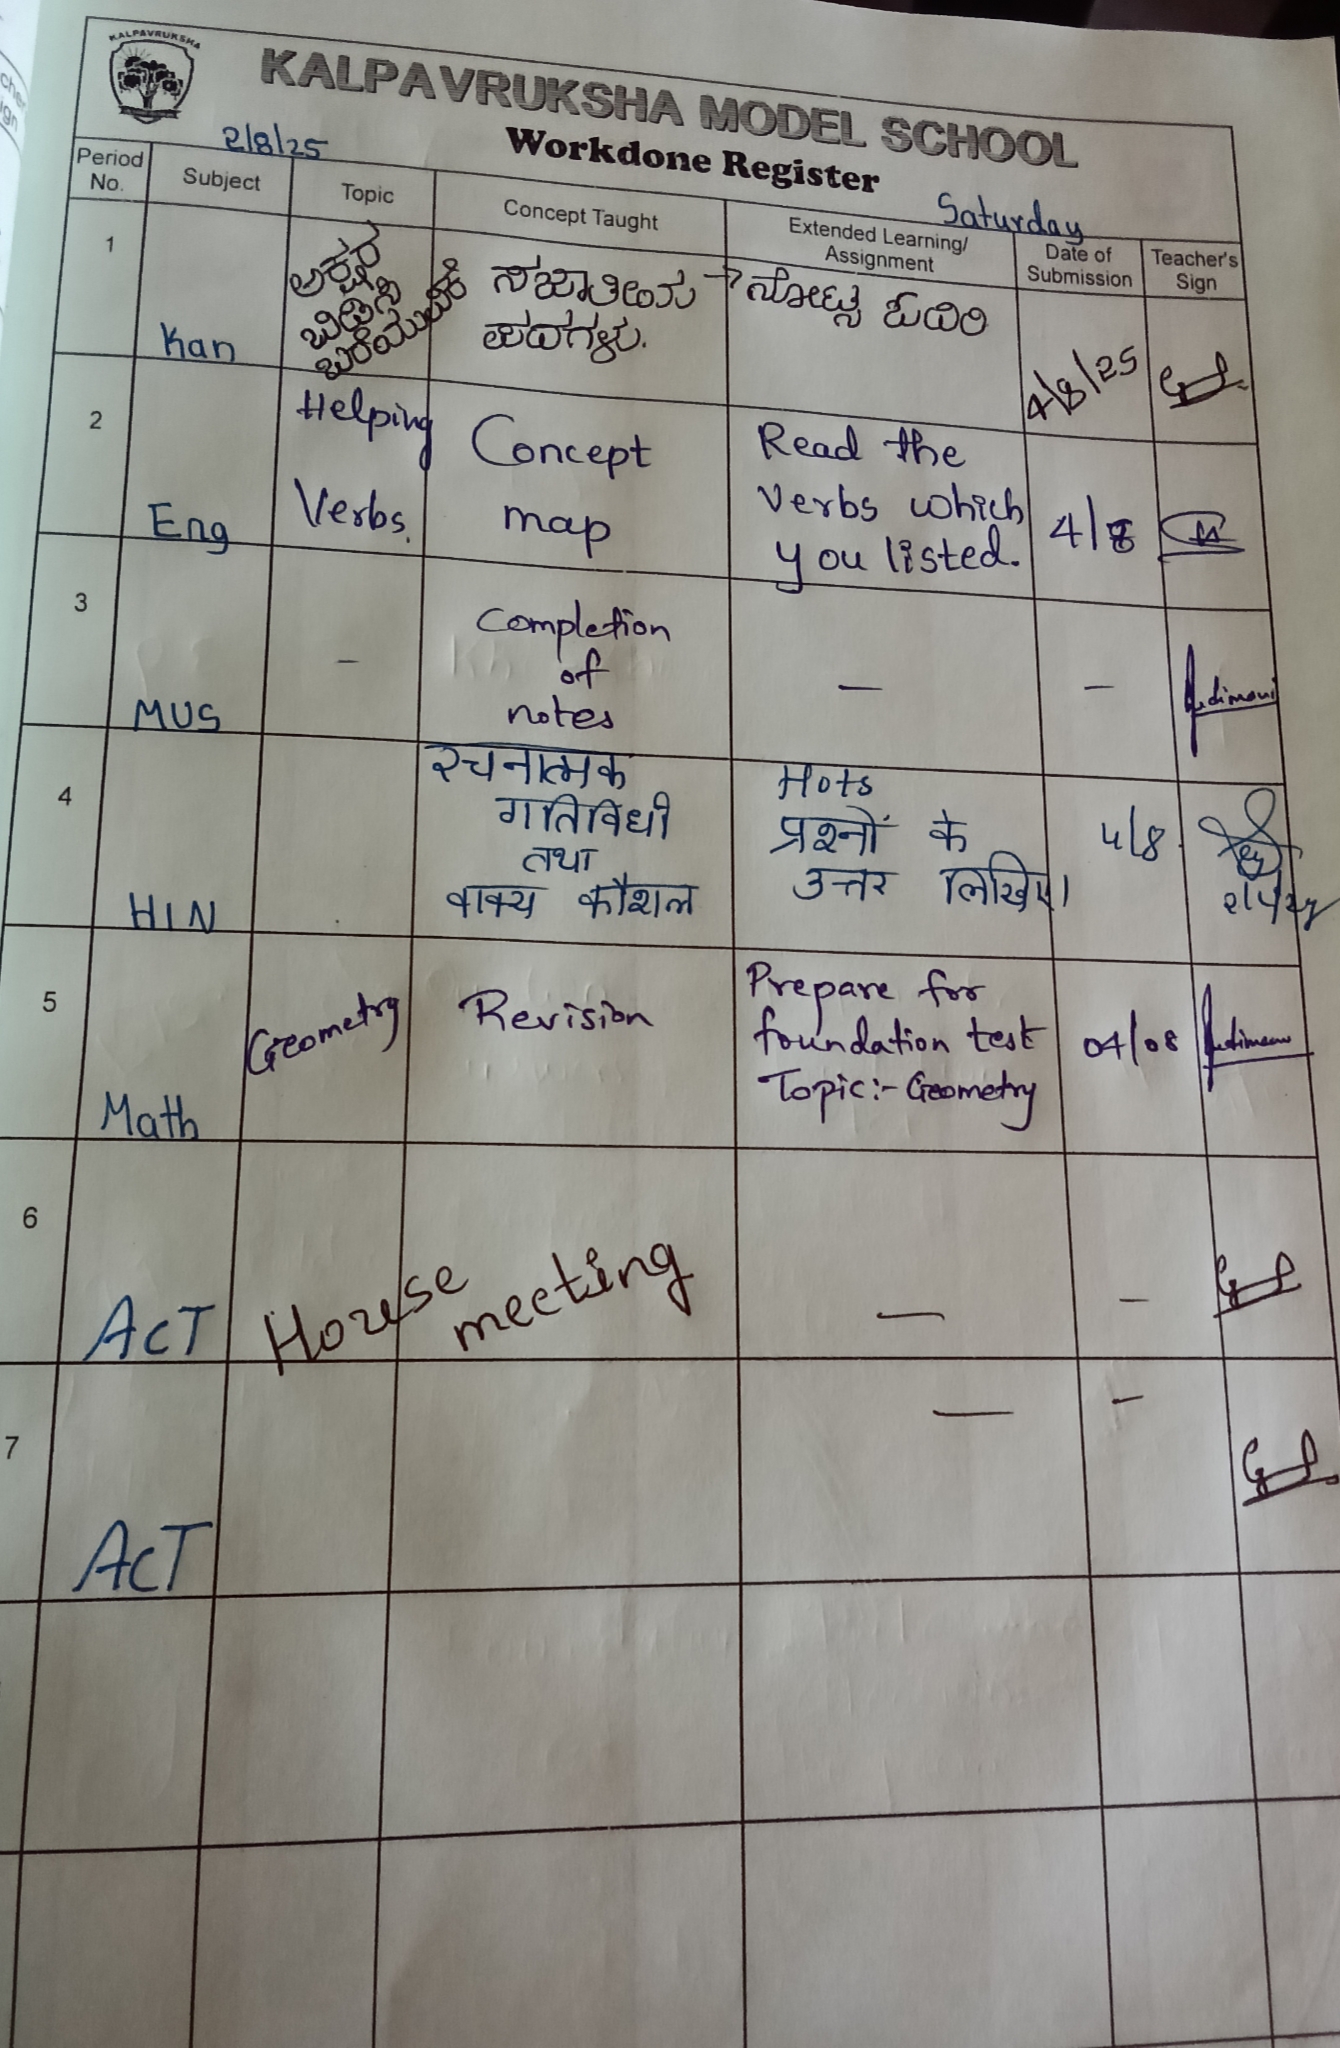 KALPAVRUKSHA
KALPAVRUKSHA MODEL SCHOOL
Workdone Register
2/8/25
Saturday
Period No. Subject Topic Concept Taught Extended Learning/ Assignment Date of Submission Teacher's Sign
1
Kan
ಅಕ್ಷರ
ಬಿಡಿಸಿ
ಬರೆಯುವಿಕೆ
ಸಜಾತೀಯ
ಪದಗಳು.
→ ನೋಟ್ಸ ಓದಿರಿ
4/8/25
2
Eng
Helping
Verbs.
Concept
map
Read the
verbs which
you listed.
4/8
3
MUS
-
Completion
of
notes
-
-
4
HIN
रचनात्मक
गतिविधी
तथा
वाक्य कौशल
Hots
प्रश्नों के
उत्तर लिखिए।
4/8
5
Math
Geometry
Revision
Prepare for
foundation test
Topic:- Geometry
04/08
6
AcT
House meeting
-
-
7
AcT
-
-